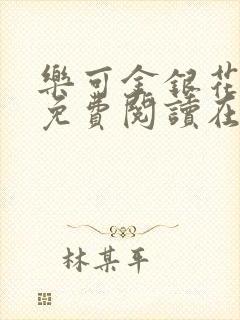 樂可金銀花
免費閱讀在
林某平